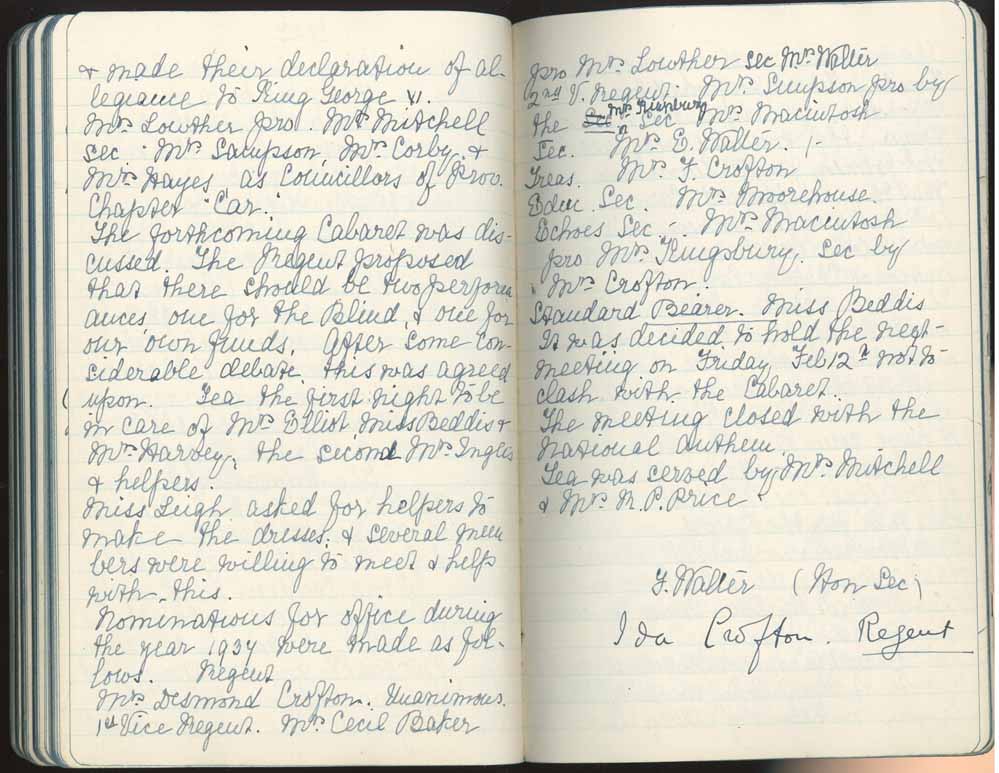 & made their declaration of al-
legiance to King George VI.
Mrs Lowther pro. Mrs Mitchell
Sec. Mrs Sampson, Mrs Corby, &
Mrs Hayes as Councillors of Prov.
Chapter "Car."
The forthcoming Cabaret was dis-
cussed. The Regent proposed
that there should be two perform
ances, one for the Blind, & one for
our own funds. After some con-
siderable debate, this was agreed
upon. Tea the first night to be
in care of Mrs Elliot Miss Beddis &
Mrs Harvey, the second Mrs Inglis
& helpers.
Miss Leigh asked for helpers to
make the dresses, & several mem
bers were willing to meet & help
with this.
Nominations for office during
the year 1937 were made as fol-
lows. Regent
Mrs Desmond Crofton. Unanimous.
1st Vice Regent. Mrs Cecil Baker
pro Mrs Lowther Sec Mrs Walter
2nd V. Regent. Mrs Simpson pro by
the Sec Mrs Kingsbury Sec Mrs Macintosh
Sec. Mrs E. Walter. 1-
Treas. Mrs F. Crofton
Educ. Sec. Mrs Moorehouse.
Echoes Sec. Mrs Macintosh
pro Mrs Kingsbury, Sec by
Mrs Crofton.
Standard Bearer. Miss Beddis
It was decided to hold the next
meeting on Friday, Feb 12th not to
clash with the Cabaret.
The meeting closed with the
National Anthem.
Tea was served by Mrs Mitchell
& Mrs N.P. Price
F. Walter (Hon Sec)
Ida Crofton. Regent